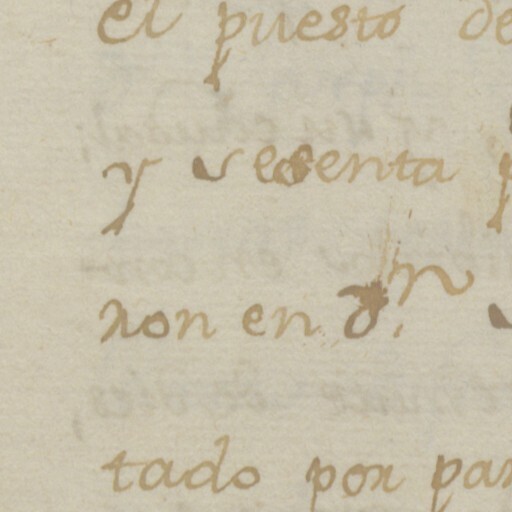 el puesto de
y sesenta
ron en
tado por par